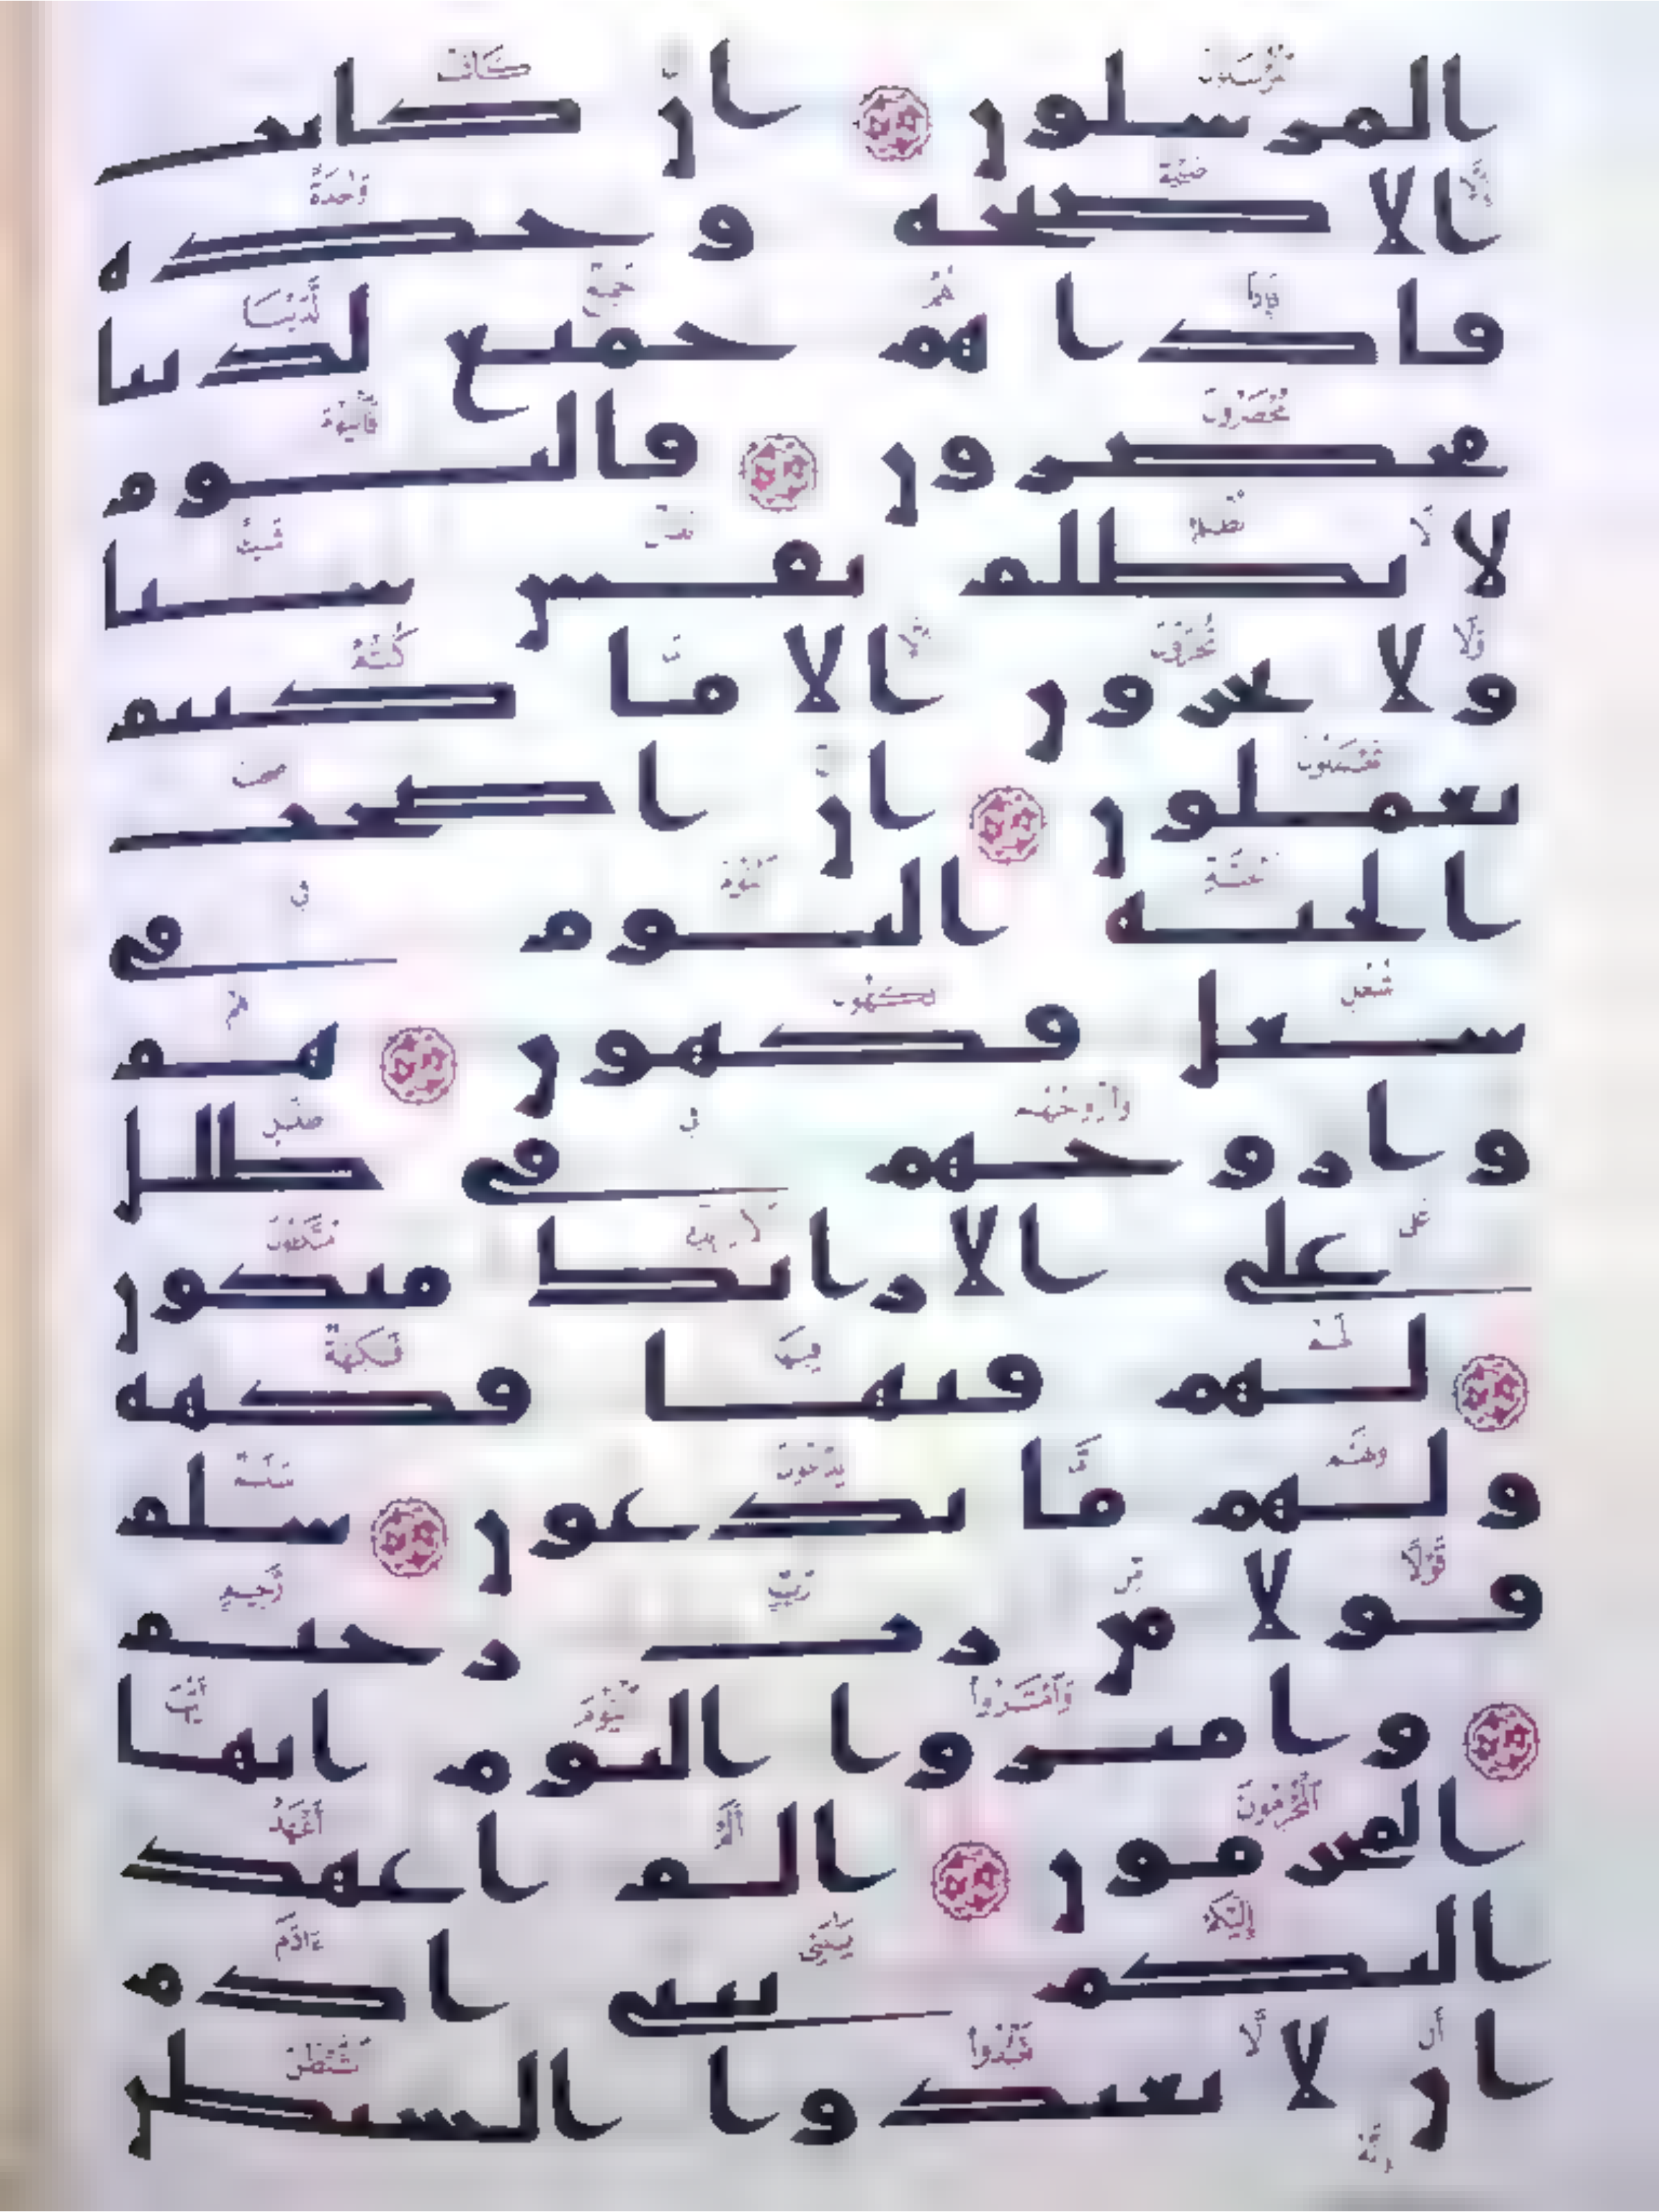 المرسلون ان كانت
الا صيحة وحدة
فاذا هم جميع لدينا
محضرون فاليوم
لا تظلم نفس شيا
ولا تجزون الا ما كنتم
تعملون ان اصحب
الجنة اليوم في
شغل فكهون هم
وازوجهم في ظلل
على الارائك متكون
لهم فيها فكهة
ولهم ما يدعون سلم
قولا من رب رحيم
وامتزوا اليوم ايها
المجرمون الم اعهد
اليكم يبني ادم
ان لا تعبدوا الشيطن